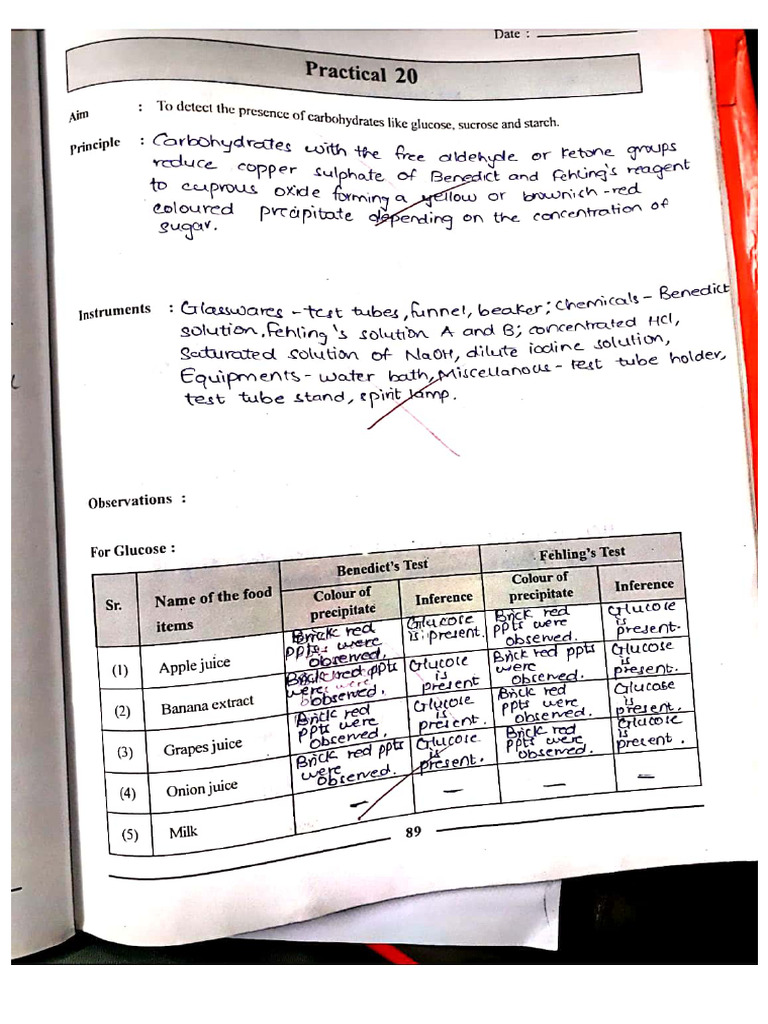 Date : 
Practical 20
Aim : To detect the presence of carbohydrates like glucose, sucrose and starch.
Principle : Carbohydrates with the free aldehyde or ketone groups
reduce copper sulphate of Benedict and Fehling's reagent
to cuprous oxide forming a yellow or brownich-red
coloured prcipitate depending on the concentration of
sugar.
Instruments : Glasswares - test tubes, funnel, beaker; Chemicals - Benedict
solution, Fehling's solution A and B; concentrated HCl,
Saturated solution of NaOH, dilute iodine solution,
Equipments - water bath, Miscellanous - test tube holder,
test tube stand, spirit lamp.
Observations :
For Glucose :
Sr. Name of the food items Benedict's Test Fehling's Test
Colour of precipitate Inference Colour of precipitate Inference
(1) Apple juice Brick red ppts were observed. Glucose is present. Brick red ppts were observed. Glucose is present.
(2) Banana extract Brick red ppts were observed. Glucose is present Brick red ppts were observed. Glucose is present.
(3) Grapes juice Brick red ppts were observed. Glucose is present. Brick red ppts were observed. Glucose is present.
(4) Onion juice Brick red ppts were observed. Glucose is present. Brick red ppts were observed. Glucose is precent.
(5) Milk – – – –
89